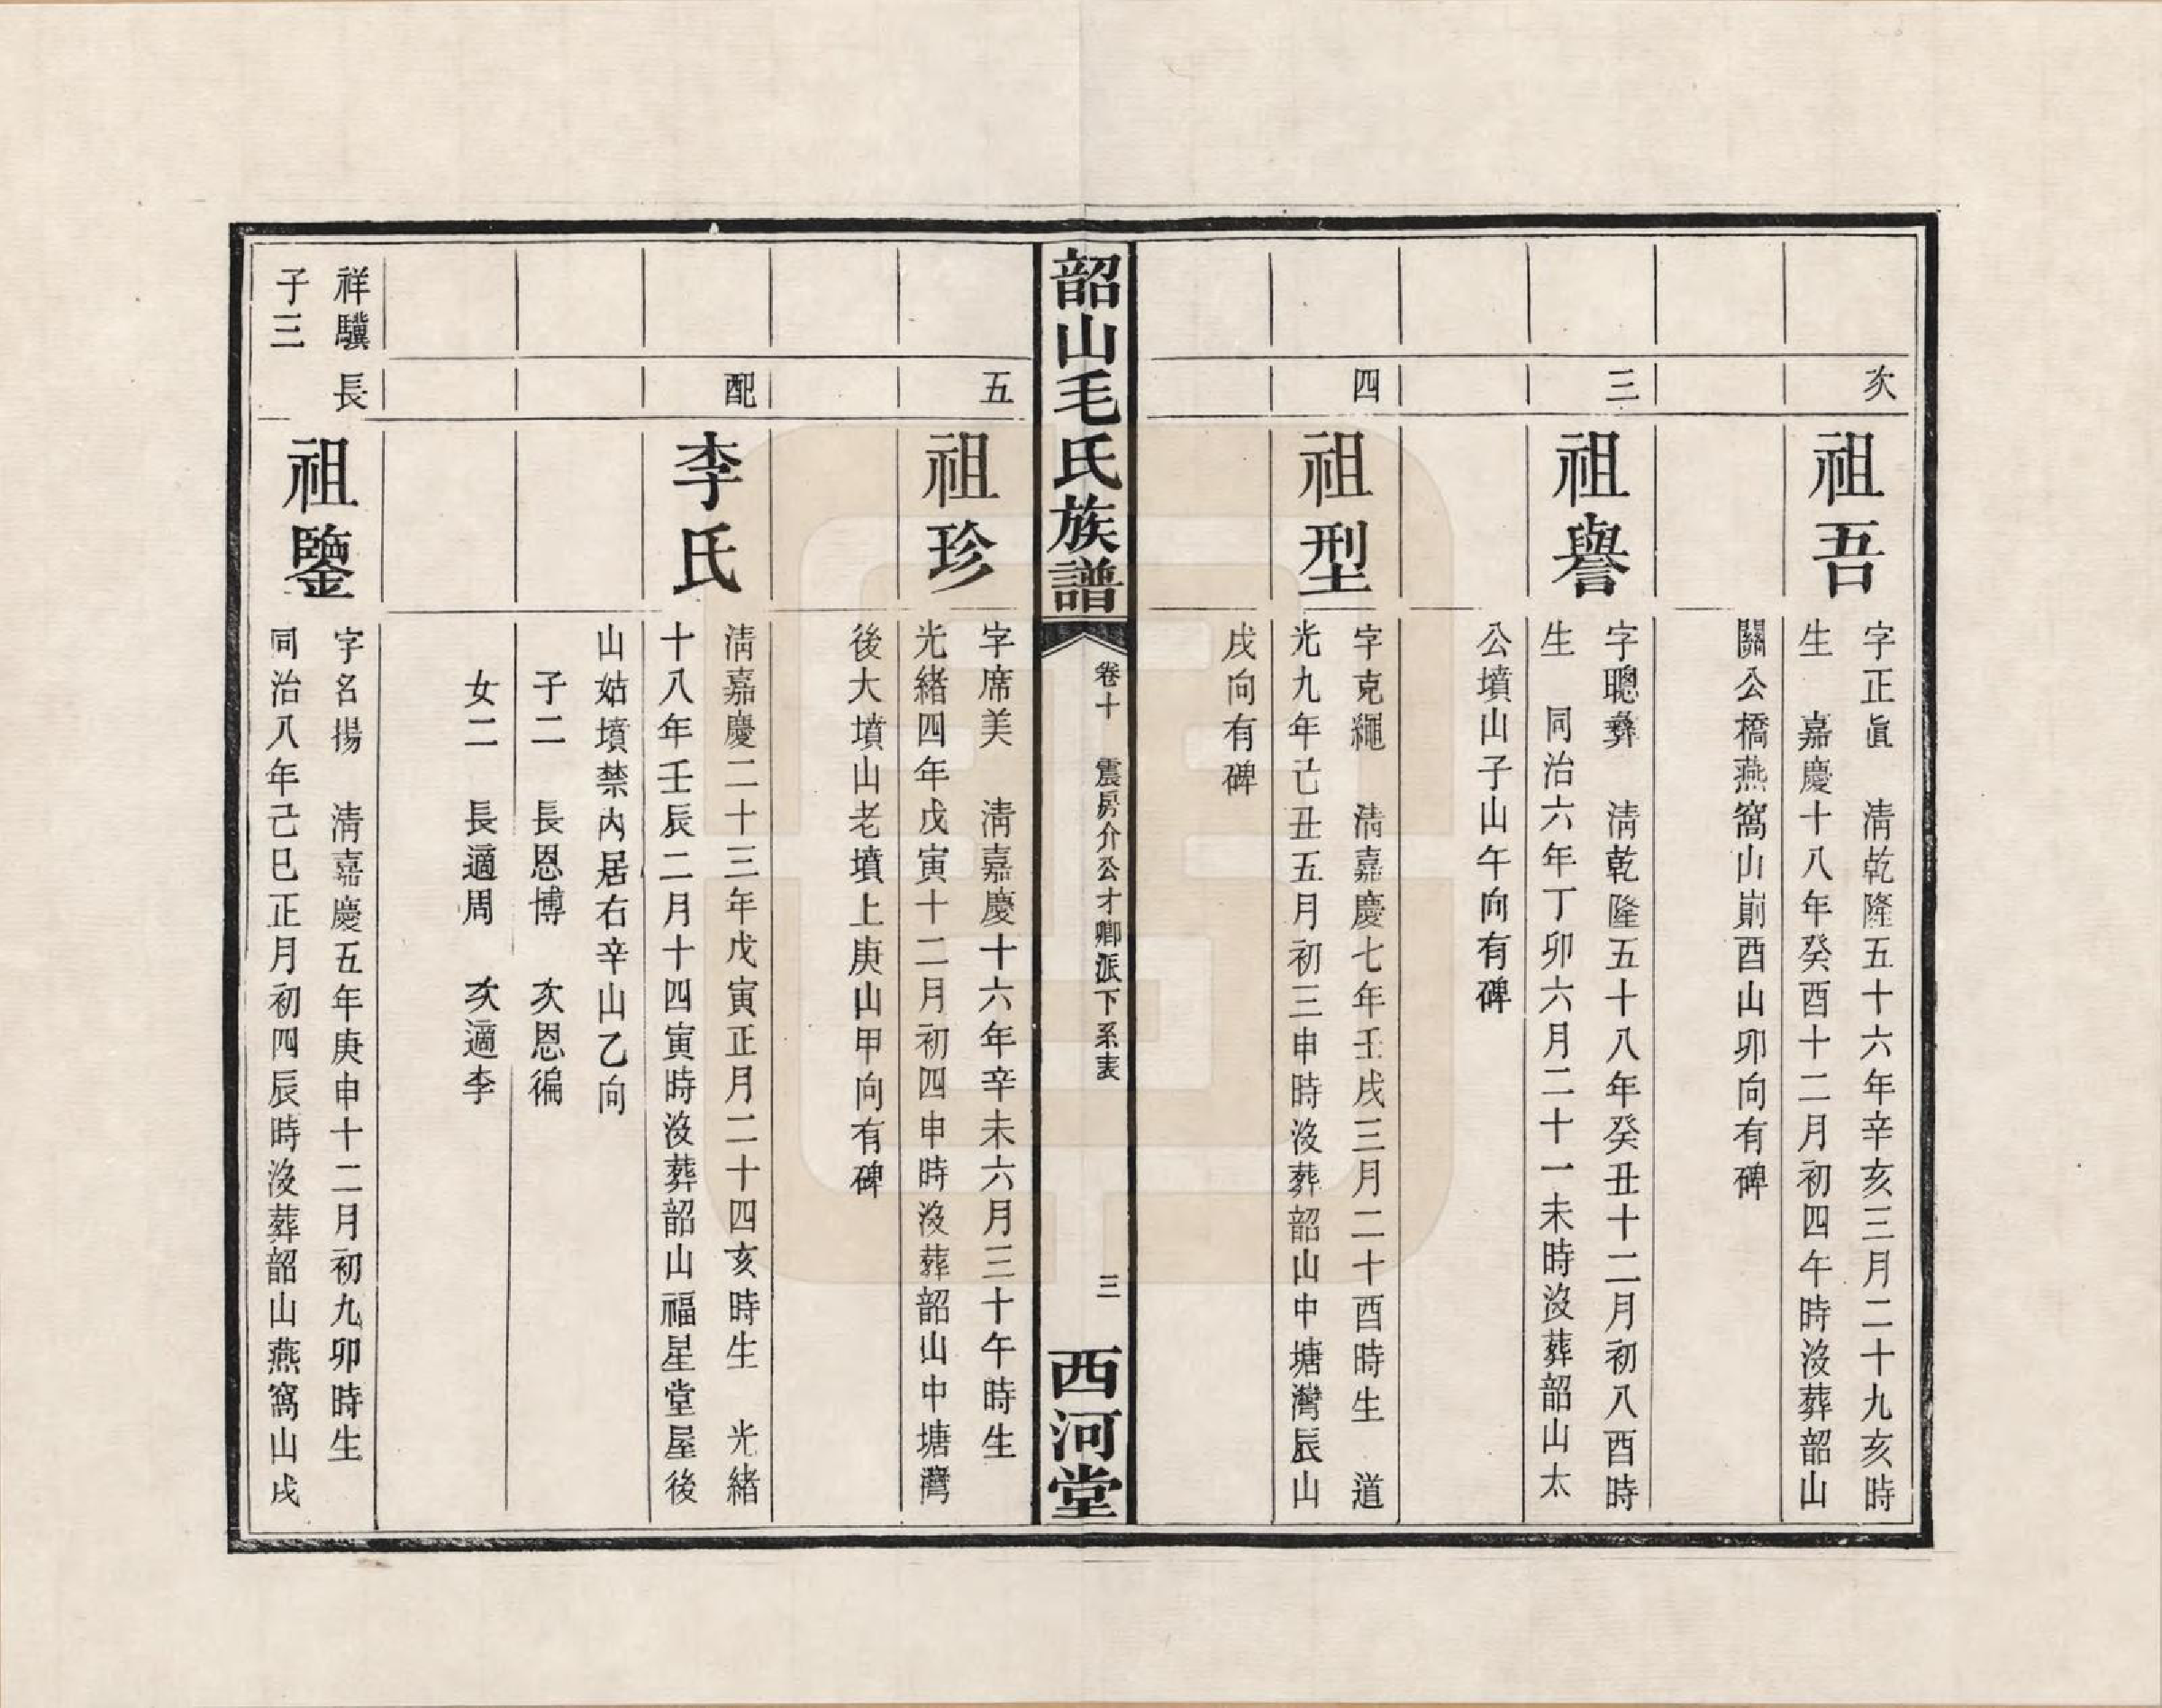 次
祖吾
字正眞 淸乾隆五十六年辛亥三月二十九亥時
生 嘉慶十八年癸酉十二月初四午時沒葬韶山
關公橋燕窩山巓酉山卯向有碑
三
祖譽
字聰彝 淸乾隆五十八年癸丑十二月初八酉時
生 同治六年丁卯六月二十一未時沒葬韶山太
公墳山子山午向有碑
四
祖型
字克繩 淸嘉慶七年壬戌三月二十酉時生 道
光九年己丑五月初三申時沒葬韶山中塘灣辰山
戌向有碑
韶山毛氏族譜
卷十 震房介公才卿派下系表
三
西河堂
五
祖珍
字席美 淸嘉慶十六年辛未六月三十午時生
光緖四年戊寅十二月初四申時沒葬韶山中塘灣
後大墳山老墳上庚山甲向有碑
配
李氏
淸嘉慶二十三年戊寅正月二十四亥時生 光緖
十八年壬辰二月十四寅時沒葬韶山福星堂屋後
山姑墳禁內居右辛山乙向
子二 長恩博 次恩徧
女二 長適周 次適李
祥驥 長
子三
祖鑒
字名揚 淸嘉慶五年庚申十二月初九卯時生
同治八年己巳正月初四辰時沒葬韶山燕窩山戌